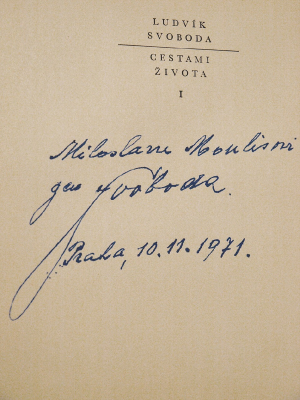 LUDVÍK
SVOBODA
CESTAMI
ŽIVOTA
I
Miloslavu Moulisovi
gen Svoboda.
Praha, 10.11.1971.